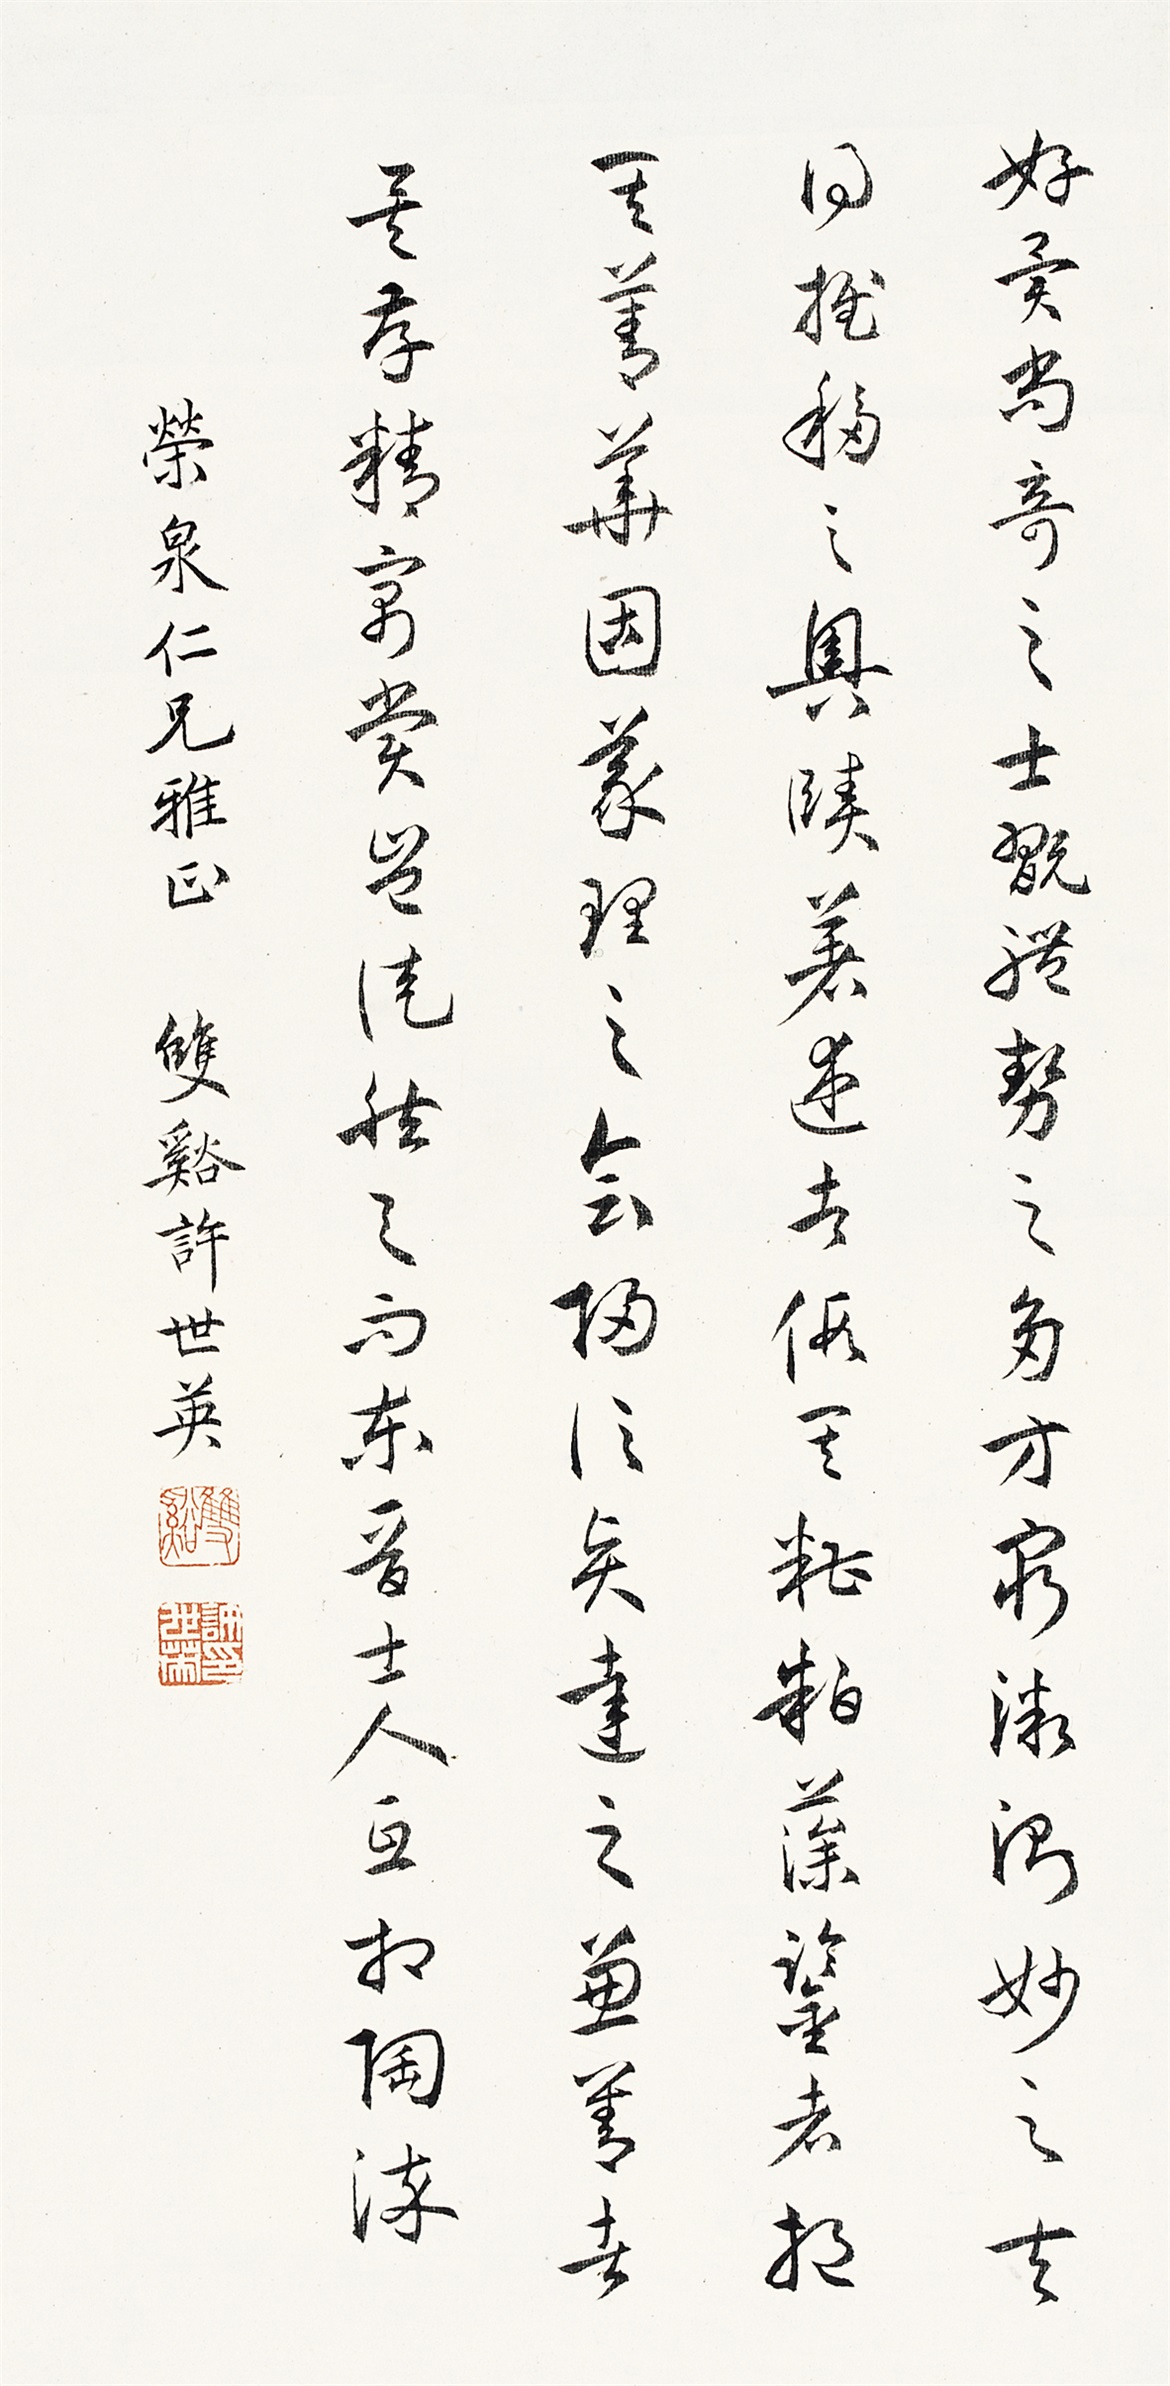 好異尚奇之士翫體勢之多方窮微測妙之夫
得推移之奧賾著述者假其糟粕藻鑒者挹
其菁華固義理之會歸信賢達之兼善者
矣存精寓賞豈徒然與而東晉士人互相陶淬
榮泉仁兄雅正 雙谿許世英
雙谿
許世英印